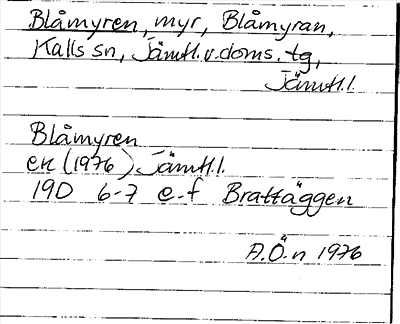 Blåmyren, myr, Blåmyran,
Kalls sn, Jämtl. v. doms. tg,
Jämtl. l.
Blåmyren
ek (1976) Jämtl. l.
19D 6-7 e-f Brattäggen
A.Ö-n 1976